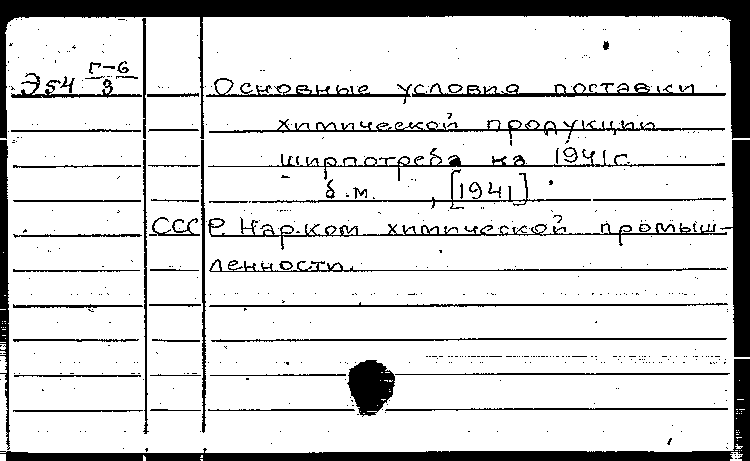 Э54 Г-6/3 Основные условия поставки
химической продукции
ширпотреба на 1941 г.
б.м., [1941].
СССР. Нар.ком химической промыш-
ленности.